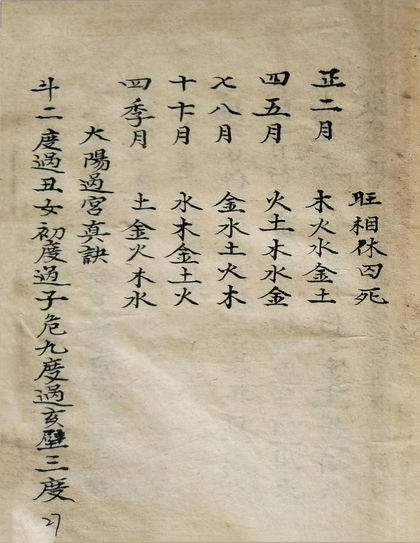 旺相休囚死
正二月　木火水金土
四五月　火土木水金
七八月　金水土火木
十十月　水木金土火
四季月　土金火木水
大陽過宮真訣
斗二度過丑女初度過子危九度過亥壁三度
27